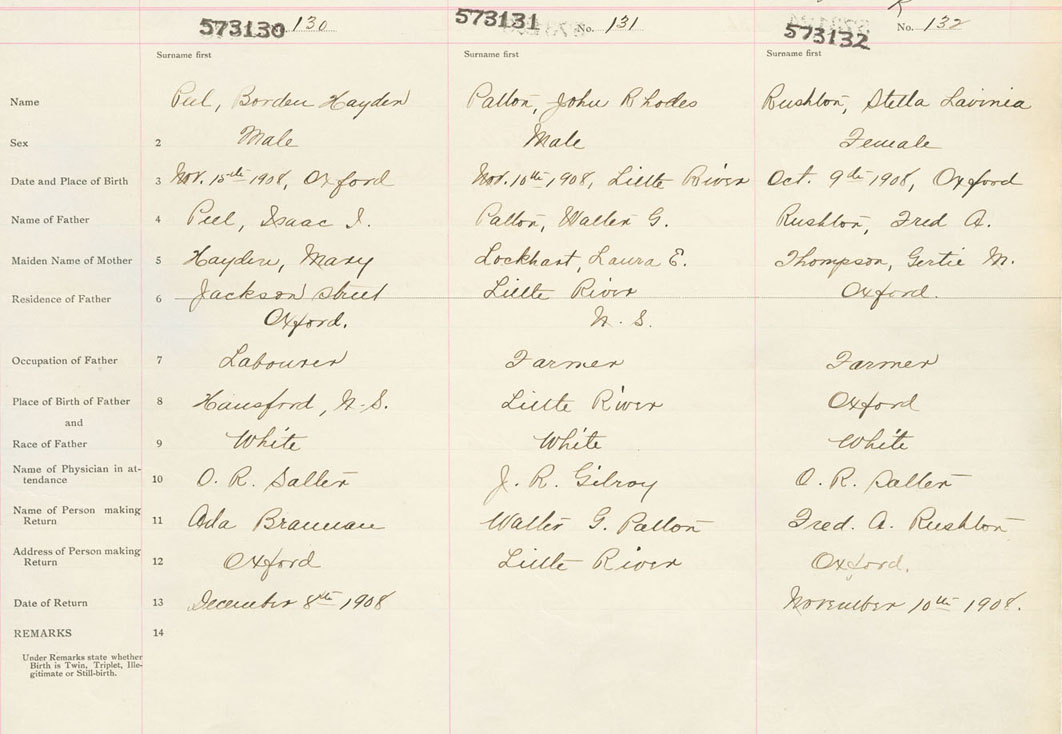 573130 130
573131 No. 131
573132 No. 132
Surname first Surname first Surname first
Name Peel, Borden Hayden Patton, John Rhodes Rushton, Stella Lavinia
Sex 2 Male Male Female
Date and Place of Birth 3 Nov. 15th 1908, Oxford Nov. 10th 1908, Little River Oct. 9th 1908, Oxford
Name of Father 4 Peel, Isaac I. Patton, Walter G. Rushton, Fred A.
Maiden Name of Mother 5 Hayden, Mary Lockhart, Laura E. Thompson, Gertie M.
Residence of Father 6 Jackson street Little River Oxford.
Oxford. N. S.
Occupation of Father 7 Labourer Farmer Farmer
Place of Birth of Father 8 Hansford, N. S. Little River Oxford
and
Race of Father 9 White White White
Name of Physician in at-
tendance 10 O. R. Salter J. R. Gilroy O. R. Salter
Name of Person making
Return 11 Ada Brannan Walter G. Patton Fred. A. Rushton
Address of Person making
Return 12 Oxford Little River Oxford.
Date of Return 13 December 8th 1908 November 10th 1908.
REMARKS 14
Under Remarks state whether
Birth is Twin, Triplet, Ille-
gitimate or Still-birth.